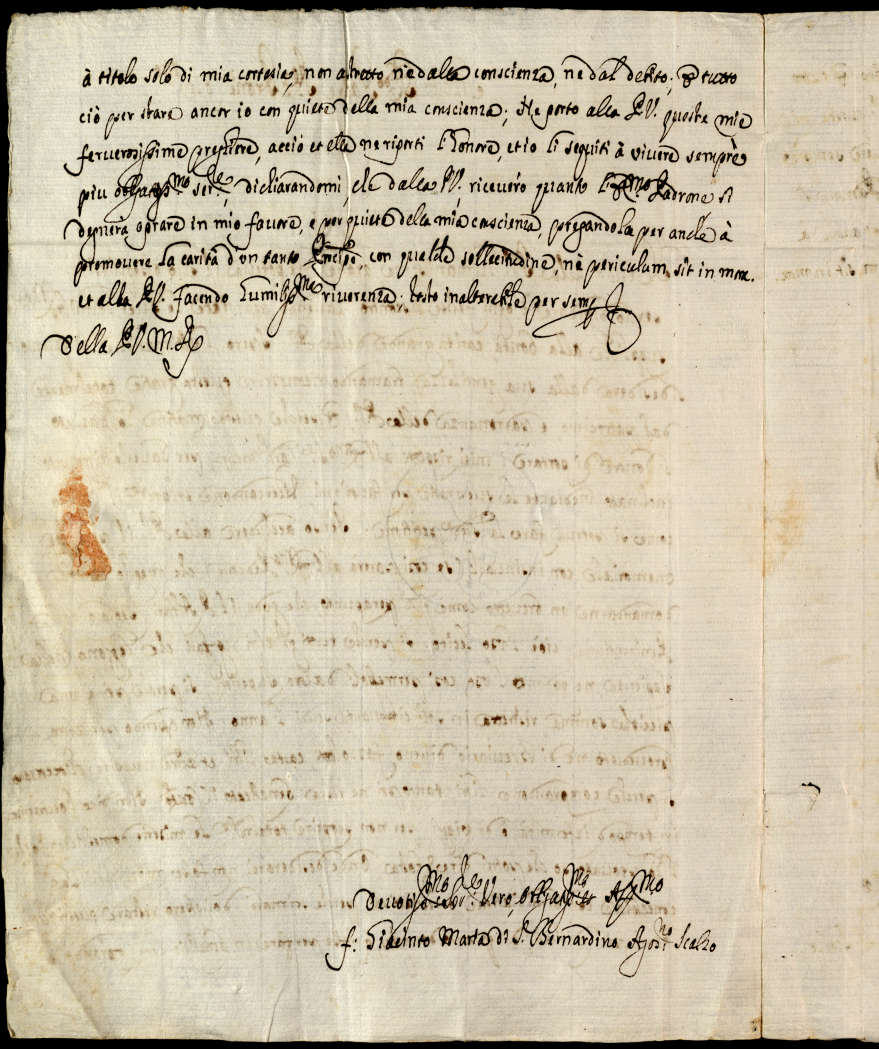 à titolo solo di mia cortesia, non astretto ne dalla conscienza, ne dal debito; e tutto
ciò per stare ancor io con quiete della mia conscienza; Ne porto alla P.V. queste mie
ferverosissime preghiere, acciò et ella ne riporti l'honore, et io li seguiti à vivere sempre
piu obligatissmo ser.re, dichiarandomi, che dalla P.V. riceverò quanto l' Padrone si
degnerà oprare in mio favore, e per quiete della mia conscienza, pregandola per anche à
promovere la carità d'un tanto Prencipe, con qualche sollecitudine, ne periculum sit in mora.
et alla P.V. facendo humilissma riverenza; resto inalterabile per sempre
Della P.V. M. R.
Devotissmo ser.re vero, obligatissmo et Affmo
f: Giacinto Maria di S. Bernardino Agost.no Scalzo